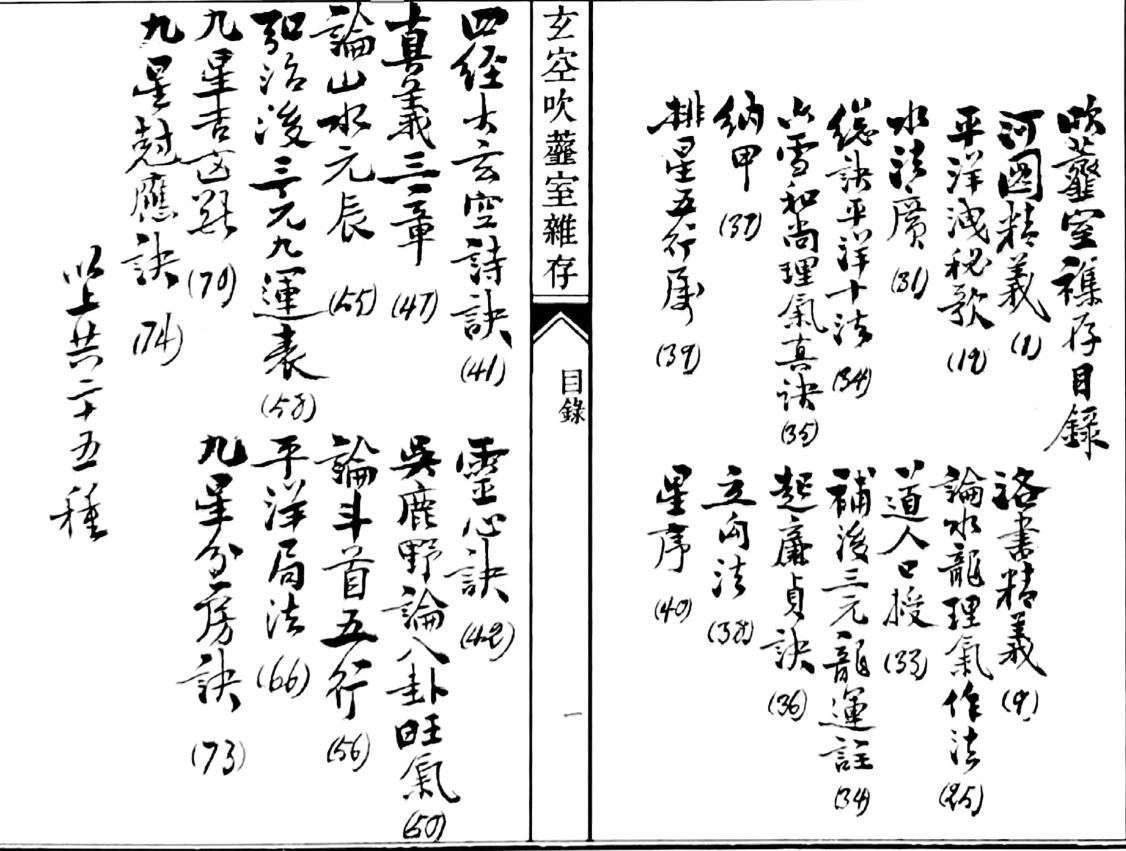 吹虀室襍存目錄
河圖精義(1)
洛書精義(9)
平洋洩秘歌(19)
論水龍理氣作法(25)
水法廣(31)
道人口授(33)
總訣平洋十法(34)
補後三元龍運註(34)
六雪和尚理氣真訣(35)
起廉貞訣(36)
納甲(37)
立向法(38)
排星五行屬(39)
星序(40)
玄空吹虀室雜存
目錄
一
四經太玄空詩訣(41)
靈心訣(42)
真義三章(47)
吳鹿野論八卦旺氣(50)
論山水元辰(55)
論斗首五行(56)
弘治後三元九運表(58)
平洋局法(66)
九星吉凶斷(70)
九星分房訣(73)
九星尅應訣(74)
以上共二十五種